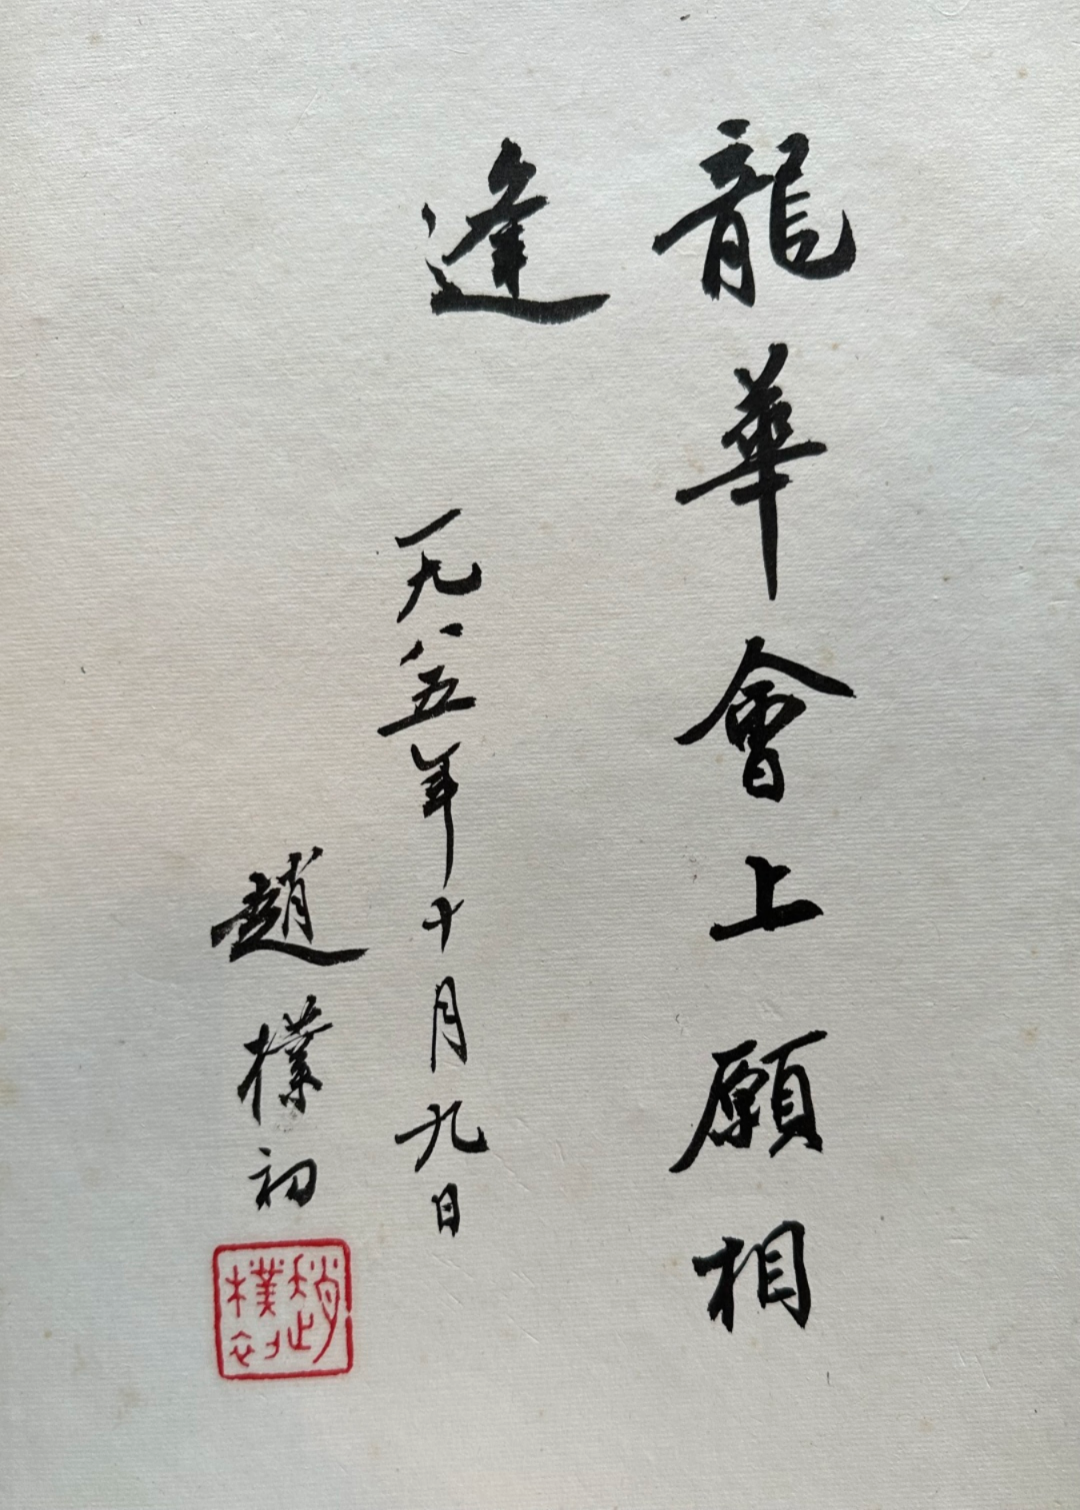 龍華會上願相
逢
一九八五年十月九日
趙樸初
趙樸初